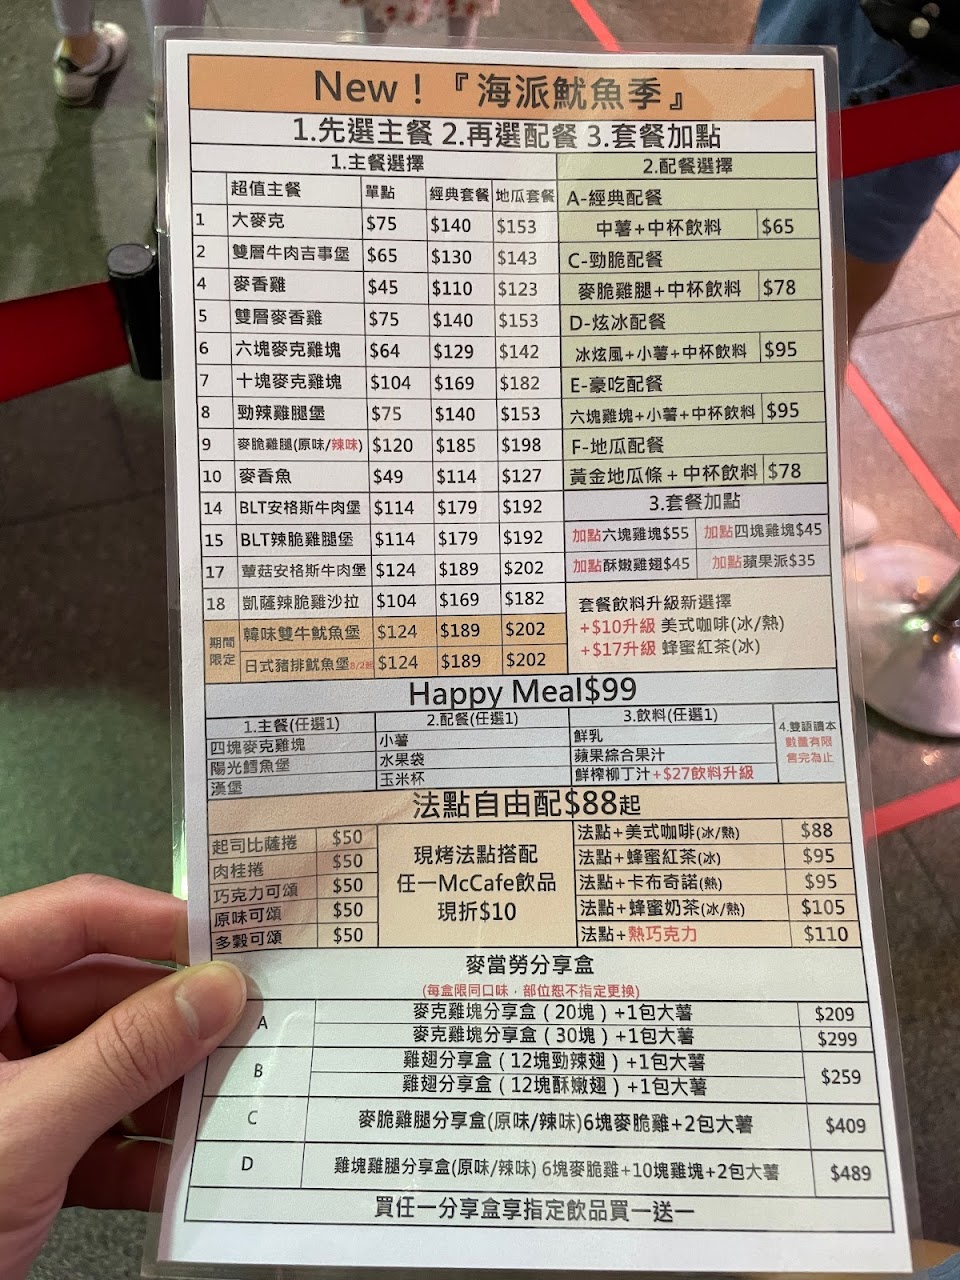 New！『海派魷魚季』
1.先選主餐 2.再選配餐 3.套餐加點
1.主餐選擇
超值主餐 單點 經典套餐 地瓜套餐
1 大麥克 $75 $140 $153
2 雙層牛肉吉事堡 $65 $130 $143
4 麥香雞 $45 $110 $123
5 雙層麥香雞 $75 $140 $153
6 六塊麥克雞塊 $64 $129 $142
7 十塊麥克雞塊 $104 $169 $182
8 勁辣雞腿堡 $75 $140 $153
9 麥脆雞腿(原味/辣味) $120 $185 $198
10 麥香魚 $49 $114 $127
14 BLT安格斯牛肉堡 $114 $179 $192
15 BLT辣脆雞腿堡 $114 $179 $192
17 蕈菇安格斯牛肉堡 $124 $189 $202
18 凱薩辣脆雞沙拉 $104 $169 $182
期間限定
韓味雙牛魷魚堡 $124 $189 $202
日式豬排魷魚堡8/2起 $124 $189 $202
2.配餐選擇
A-經典配餐
中薯+中杯飲料 $65
C-勁脆配餐
麥脆雞腿+中杯飲料 $78
D-炫冰配餐
冰炫風+小薯+中杯飲料 $95
E-豪吃配餐
六塊雞塊+小薯+中杯飲料 $95
F-地瓜配餐
黃金地瓜條+中杯飲料 $78
3.套餐加點
加點六塊雞塊$55 加點四塊雞塊$45
加點酥嫩雞翅$45 加點蘋果派$35
套餐飲料升級新選擇
+$10升級 美式咖啡(冰/熱)
+$17升級 蜂蜜紅茶(冰)
Happy Meal$99
1.主餐(任選1) 2.配餐(任選1) 3.飲料(任選1)
四塊麥克雞塊 小薯 鮮乳
陽光鱈魚堡 水果袋 蘋果綜合果汁
漢堡 玉米杯 鮮榨柳丁汁+$27飲料升級
4.雙語讀本
數量有限
售完為止
法點自由配$88起
起司比薩捲 $50
肉桂捲 $50
巧克力可頌 $50
原味可頌 $50
多穀可頌 $50
現烤法點搭配
任一McCafe飲品
現折$10
法點+美式咖啡(冰/熱) $88
法點+蜂蜜紅茶(冰) $95
法點+卡布奇諾(熱) $95
法點+蜂蜜奶茶(冰/熱) $105
法點+熱巧克力 $110
麥當勞分享盒
(每盒限同口味，部位恕不指定更換)
A 麥克雞塊分享盒（20塊）+1包大薯 $209
麥克雞塊分享盒（30塊）+1包大薯 $299
B 雞翅分享盒（12塊勁辣翅）+1包大薯 $259
雞翅分享盒（12塊酥嫩翅）+1包大薯
C 麥脆雞腿分享盒(原味/辣味)6塊麥脆雞+2包大薯 $409
D 雞塊雞腿分享盒(原味/辣味) 6塊麥脆雞+10塊雞塊+2包大薯 $489
買任一分享盒享指定飲品買一送一